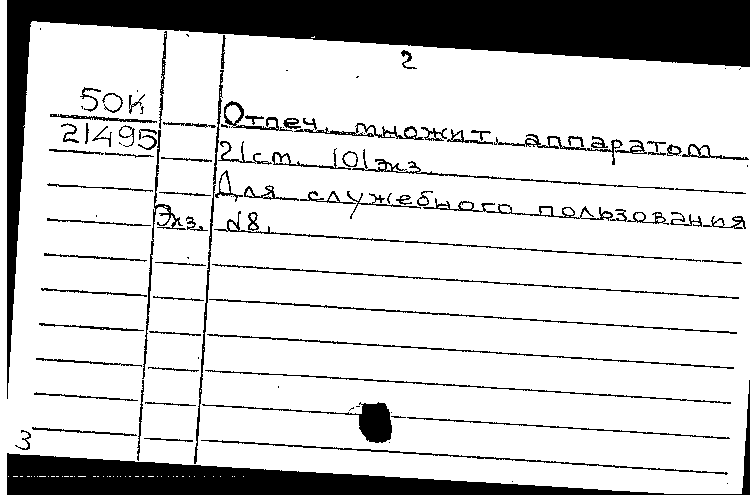 2
50К
Отпеч. множит. аппаратом
21495
21ст. 101экз.
Для служебного пользования
Экз. №8.
3